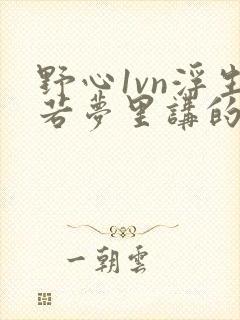 野心1vn浮生
若夢里講的
一朝雲